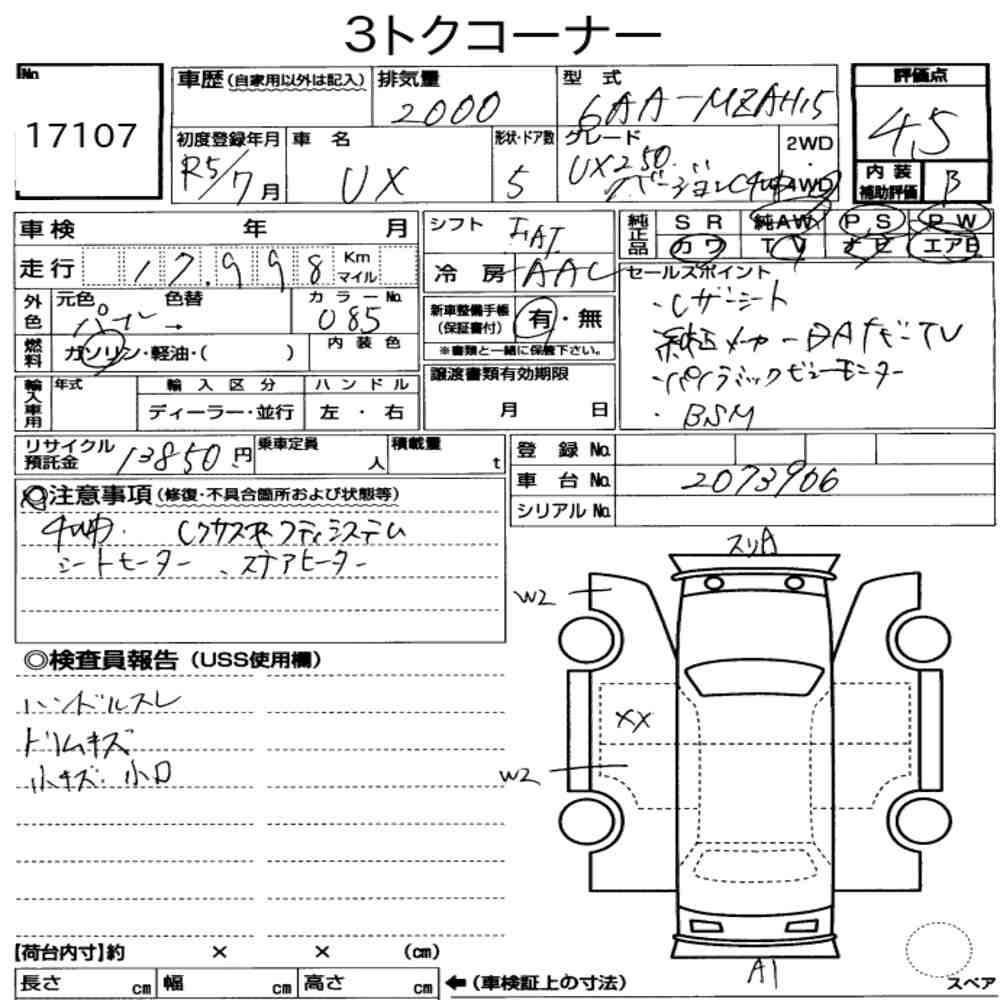 3トクコーナー
No
17107
車歴 (自家用以外は記入)
排気量
2000
型 式
6AA-MZAH15
評価点
4.5
初度登録年月
R5/7月
車 名
UX
形状・ドア数
5
グレード
UX250
2WD
4WD
内 装
補助評価
B
車検 年 月
シフト
FAT
純正品
SR 純AW PS PW
カワ TV ナビ エアB
走行 17.998 Km
マイル
冷 房 AAC
セールスポイント
・レザーシート
純正メーカーDAナビTV
・パノラミックビューモニター
・BSM
外色
元色 色替
パール →
カラーNo.
085
新車整備手帳
(保証書付)
有・無
※書類と一緒に保管下さい。
燃料
ガソリン・軽油・( )
内 装 色
輸入車用
年式
輸 入 区 分
ディーラー・並行
ハ ン ド ル
左 ・ 右
譲渡書類有効期限
月 日
リサイクル
預託金
13850円
乗車定員
人
積載量
t
登 録 No.
車 台 No.
2073906
シリアル No.
◎注意事項 (修復・不具合箇所および状態等)
4WD. レクサスセーフティシステム
シートヒーター 、ステアヒーター
◎検査員報告 (USS使用欄)
ハンドルスレ
ドリムキズ
小キズ・小凹
スリA
W2
XX
W2
A1
スペア
【荷台内寸】約 × × (cm)
長さ cm 幅 cm 高さ cm
←(車検証上の寸法)